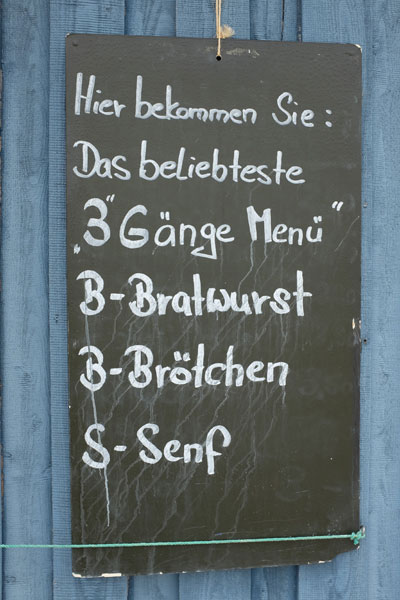 Hier bekommen Sie:
Das beliebteste
„3" Gänge Menü"
B-Bratwurst
B-Brötchen
S-Senf